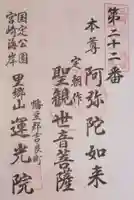 第二十二番
本尊 阿弥陀如来
定朝作
聖観世音菩薩
幡豆郡吉良町
黒郷山 運光院
国定公園
宮崎海岸